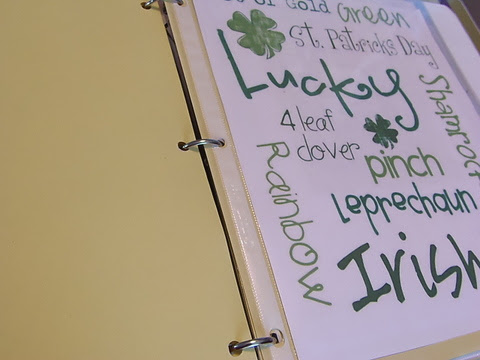 of Gold Green
St. Patricks Day
Lucky
Shamrock
4 leaf
clover
pinch
Rainbow
Leprechaun
Irish